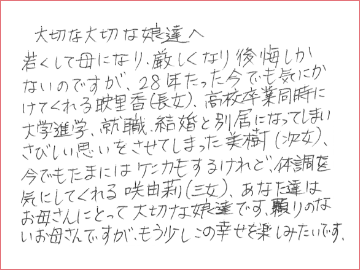 大切な大切な娘達へ
若くして母になり、厳しくなり後悔しか
ないのですが、28年たった今でも気にか
けてくれる映里香(長女)、高校卒業同時に
大学進学、就職、結婚と別居になってしまい
さびしい思いをさせてしまった美樹(次女)、
今でもたまにはケンカもするけれど、体調を
気にしてくれる咲由莉(三女)、あなた達は
お母さんにとって大切な娘達です。頼りのな
いお母さんですが、もう少しこの幸せを楽しみたいです。